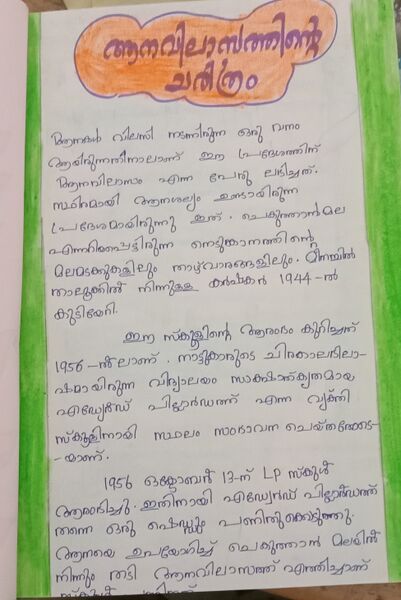 ആനവിലാസത്തിന്റെ
ചരിത്രം
ആനകൾ വിലസി നടന്നിരുന്ന ഒരു വനം
ആയിരുന്നതിനാലാണ് ഈ പ്രദേശത്തിന്
ആനവിലാസം എന്ന പേരു ലഭിച്ചത്.
സ്ഥിരമായി ആനശല്യം ഉണ്ടായിരുന്ന
പ്രദേശമായിരുന്നു ഇത്. ചെകുത്താൻമല
എന്നറിയപ്പെട്ടിരുന്ന നെടുങ്കാനത്തിന്റെ
മലമടക്കുകളിലും താഴ്‌വാരങ്ങളിലും. മീനച്ചിൽ
താലൂക്കിൽ നിന്നുള്ള കർഷകർ 1944-ൽ
കുടിയേറി.
ഈ സ്കൂളിന്റെ ആരംഭം കുറിച്ചത്
1956-ൽലാണ്. നാട്ടുകാരുടെ ചിരകാലഭിലാ-
ഷമായിരുന്ന വിദ്യാലയം സാക്ഷാത്കൃതമായ
എഡ്വേർഡ് പിച്ചാർഡത്ത് എന്ന വ്യക്തി
സ്കൂളിനായി സ്ഥലം സംഭാവന ചെയ്തതോടെ-
-യാണ്.
1956 ഒക്ടോബർ 13-ന് LP സ്കൂൾ
ആരംഭിച്ചു. ഇതിനായി എഡ്വേർഡ് പിച്ചാർഡത്ത്
തന്നെ ഒരു ഷെഡ്ഡും പണിതുക്കൊടുത്തു.
ആനയെ ഉപയോഗിച്ച് ചെകുത്താൻ മലയിൽ
നിന്നും തടി ആനവിലാസത്ത് എത്തിച്ചാണ്